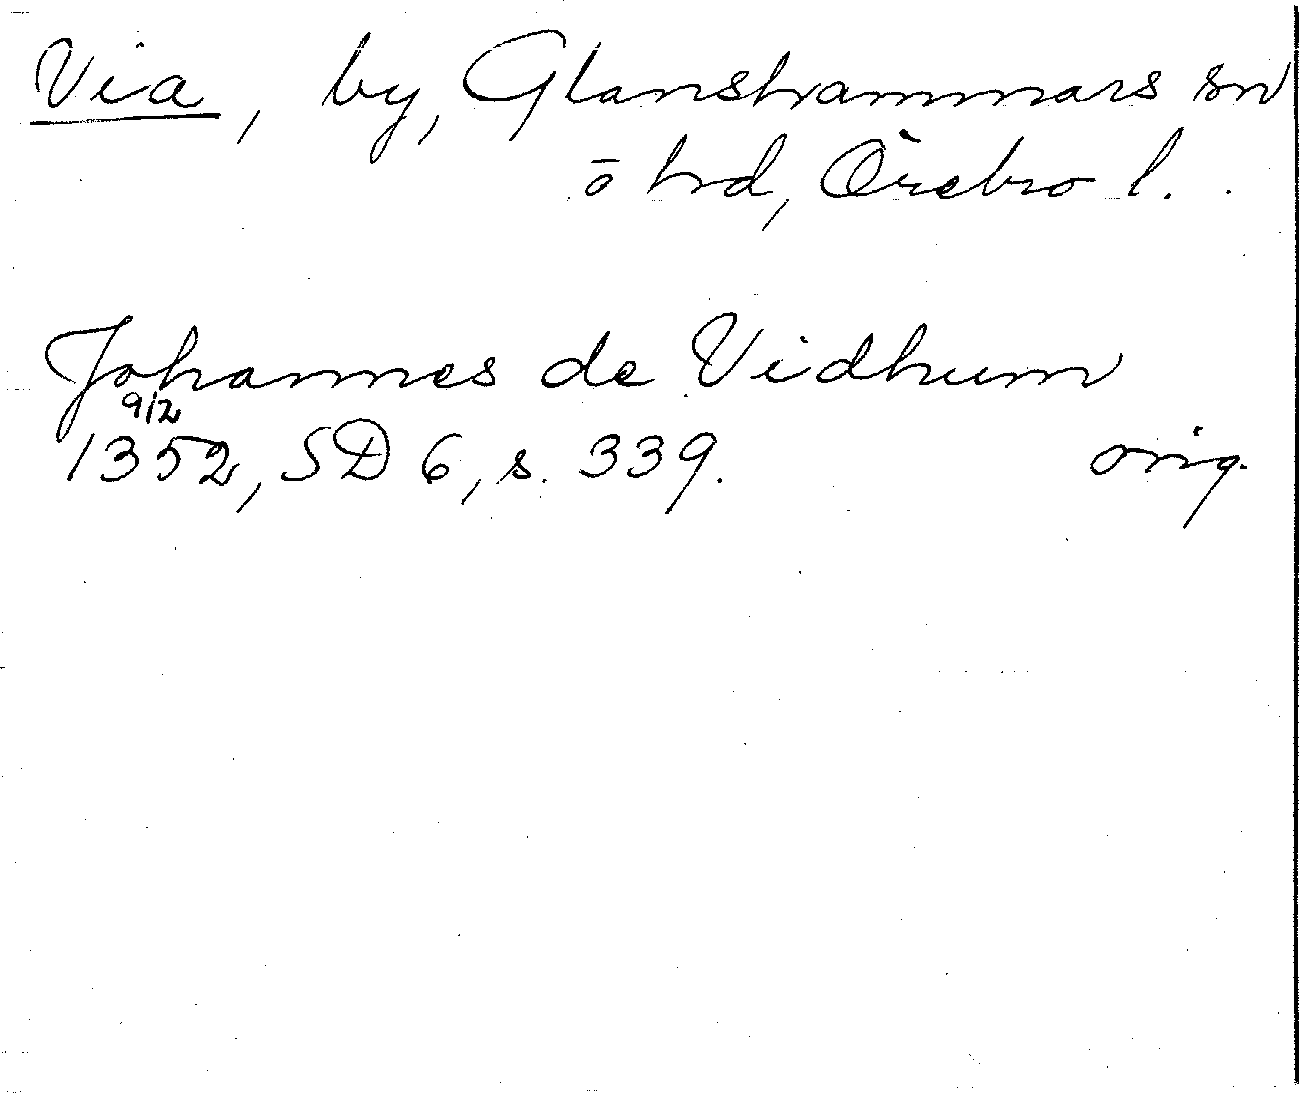 Via, by, Glanshammars sn
ō hd, Örebro l.
Johannes de Vidhum
9/2
1352, SD 6, s. 339. orig.